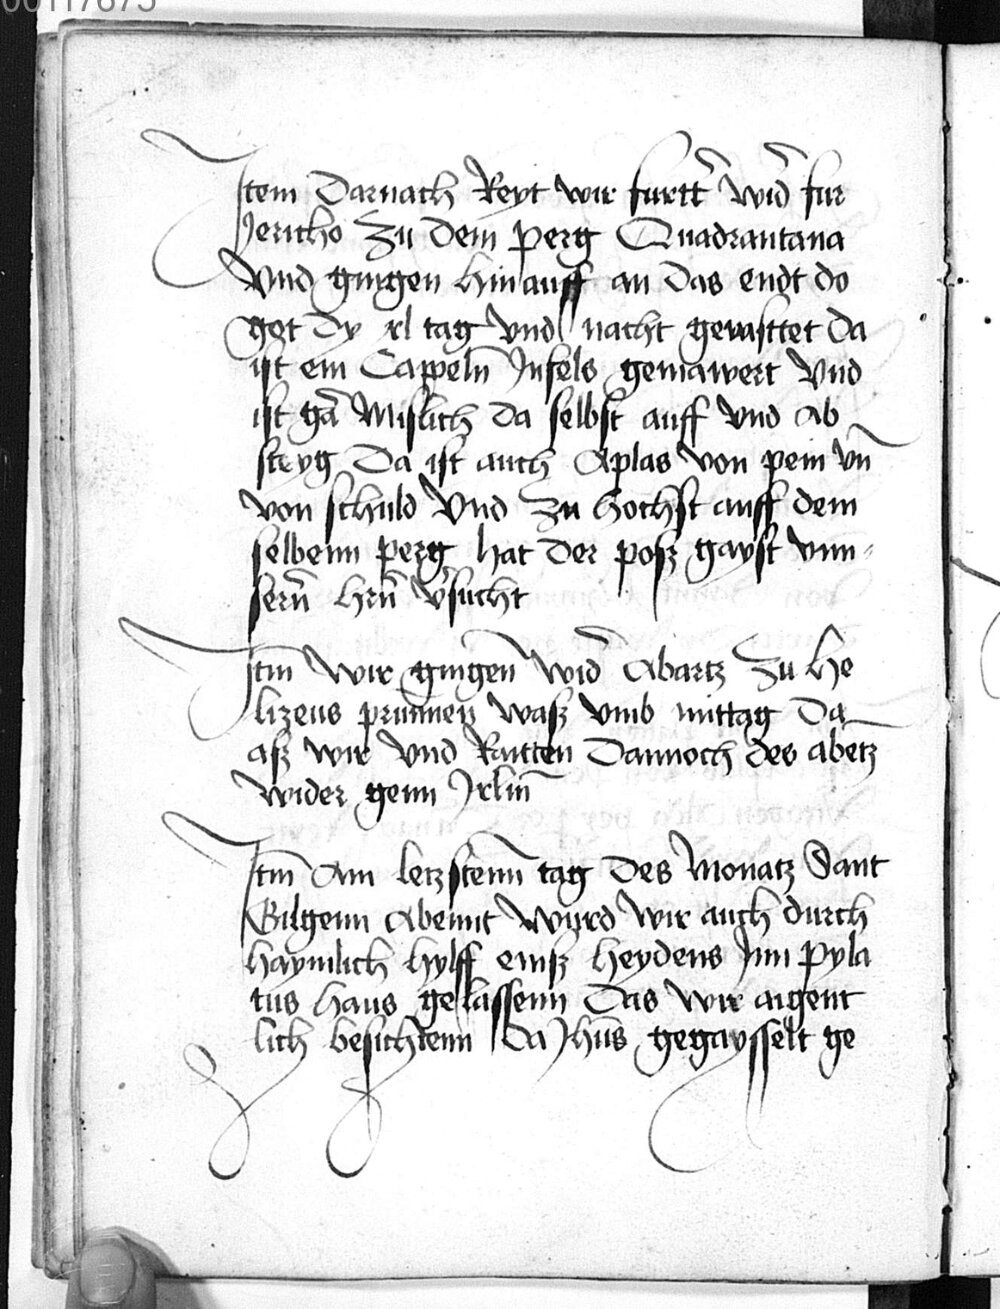 00117675
Item Darnach Reyt wir furtt wid fur
Jericho Zu dem perg Quadrantana
Vnd gingen hinauff an das endt do
got dy xl tag vnd nacht gevasttet da
ist ein Cappeln Jnfels gemawert Vnd
ist gar Mislich da selbst auff vnd Ab
steyg Da ist auch Aplas von pein vn
von schuld Vnd zu hochst auff dem
selbenn perg hat der posz gayst vnn-
sern hrn vsucht
Itm Wir gingen Wid Abartz Zu he
lizeus prunnen wasz vmb mittag Da
asz wir Vnd Raitten Dannoch des abetz
wider genn Jrlm
Itm Am letzstenn tag Des Monatz Sant
Gilgenn Abennt Wurd Wir auch durch
haymlich hylff einsz heydens Jnn pyla
tus haus gelassenn Das Wir aigent
lich besichtenn Da Jhus gegaysselt ge